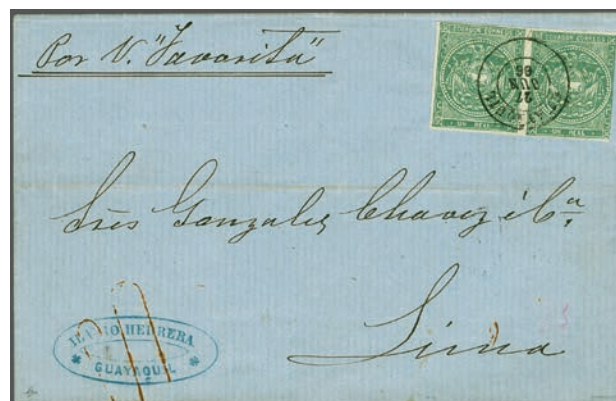 Por V. "Favorita"
ECUADOR CORREOS
UN REAL
ECUADOR CORREOS
UN REAL
GUAYAQUIL
27
JUN
66
Sres Gonzalez Chavez i Ca.
Lima
HERRERA
GUAYAQUIL